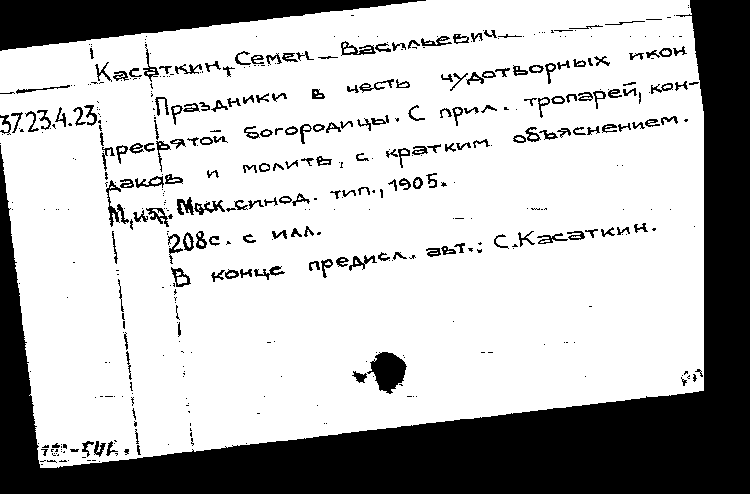 Касаткин, Семен Васильевич
37.23.4.23
Праздники в честь чудотворных икон
пресвятой богородицы. С прил. тропарей, кон-
даков и молитв, с кратким объяснением.
М, изд. Моск. синод. тип., 1905.
208с. с илл.
В конце предисл. авт.: С. Касаткин.